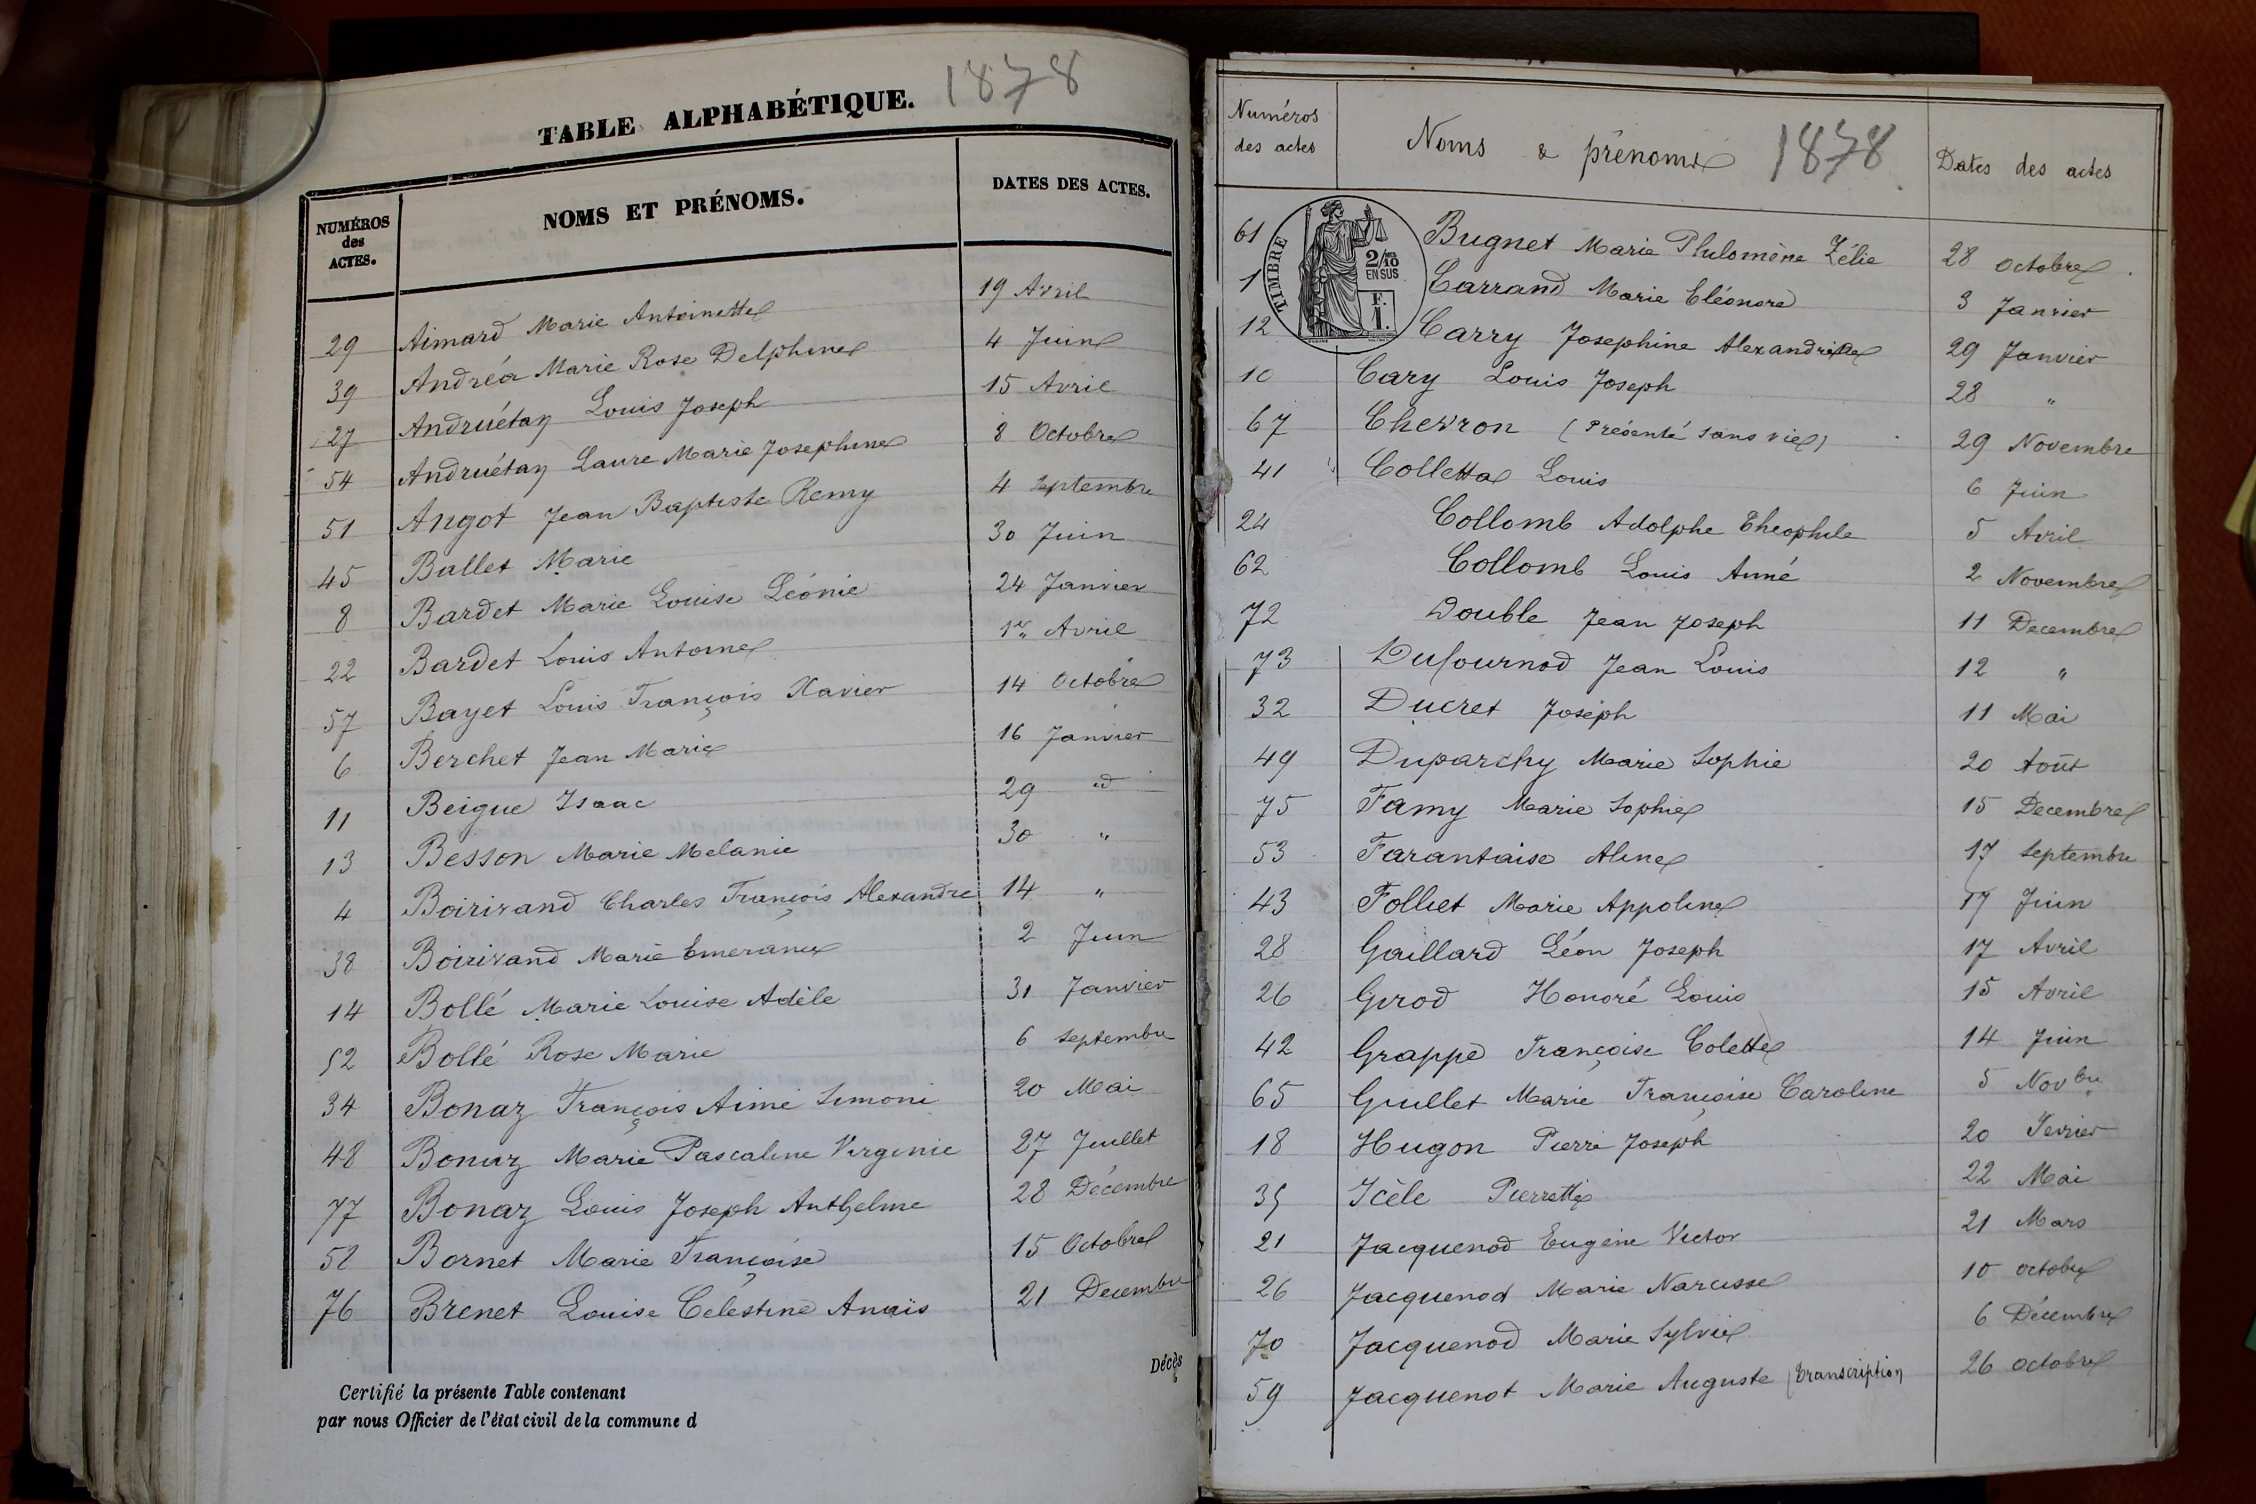 TABLE ALPHABÉTIQUE. 1878
NUMÉROS des ACTES. NOMS ET PRÉNOMS. DATES DES ACTES.
29 Aimard Marie Antoinette 19 Avril
39 Andréa Marie Rose Delphine 4 Juin
27 Andruétan Louis Joseph 15 Avril
54 Andruétan Laure Marie Josephine 8 Octobre
51 Angot Jean Baptiste Remy 4 septembre
45 Ballet Marie 30 Juin
8 Bardet Marie Louise Léonie 24 Janvier
22 Bardet Louis Antoine 1er Avril
57 Bayet Louis François Xavier 14 Octobre
6 Berchet Jean Marie 16 Janvier
11 Beigue Isaac 29 d
13 Besson Marie Melanie 30 "
4 Boirivand Charles François Alexandre 14 "
38 Boirivand Marie Emerance 2 Juin
14 Bollé Marie Louise Adèle 31 Janvier
52 Bollé Rose Marie 6 septembre
34 Bonaz François Aimé Simoni 20 Mai
48 Bonaz Marie Pascaline Virginie 27 Juillet
77 Bonaz Louis Joseph Anthelme 28 Décembre
58 Bornet Marie Françoise 15 Octobre
76 Brenet Louise Celestine Anaïs 21 Decembre
Décès
Certifié la présente Table contenant
par nous Officier de l'état civil de la commune d
Numéros des actes Noms & prénoms 1878 Dates des actes
TIMBRE 2/10 EN SUS F. 1.
61 Bugnet Marie Philomène Zélie 28 octobre
1 Carrand Marie Eléonore 3 Janvier
12 Carry Josephine Alexandrine 29 Janvier
10 Cary Louis Joseph 28 "
67 Chevron (Présenté sans vie) 29 Novembre
41 Colletta Louis 6 Juin
24 Collomb Adolphe Theophile 5 Avril
62 Collomb Louis Aimé 2 Novembre
72 Double Jean Joseph 11 Decembre
73 Dufournod Jean Louis 12 "
32 Ducret Joseph 11 Mai
49 Duparchy Marie Sophie 20 Août
75 Famy Marie Sophie 15 Decembre
53 Farantaise Aline 17 septembre
43 Folliet Marie Appoline 17 Juin
28 Gaillard Léon Joseph 17 Avril
26 Girod Honoré Louis 15 Avril
42 Grappe Françoise Colette 14 Juin
65 Guillet Marie Françoise Caroline 5 Novbre
18 Hugon Pierre Joseph 20 Fevrier
35 Icèle Pierrette 22 Mai
21 Jacquenod Eugène Victor 21 Mars
26 Jacquenod Marie Narcisse 10 octobre
70 Jacquenod Marie Sylvie 6 Décembre
59 Jacquenot Marie Auguste (transcription 26 octobre